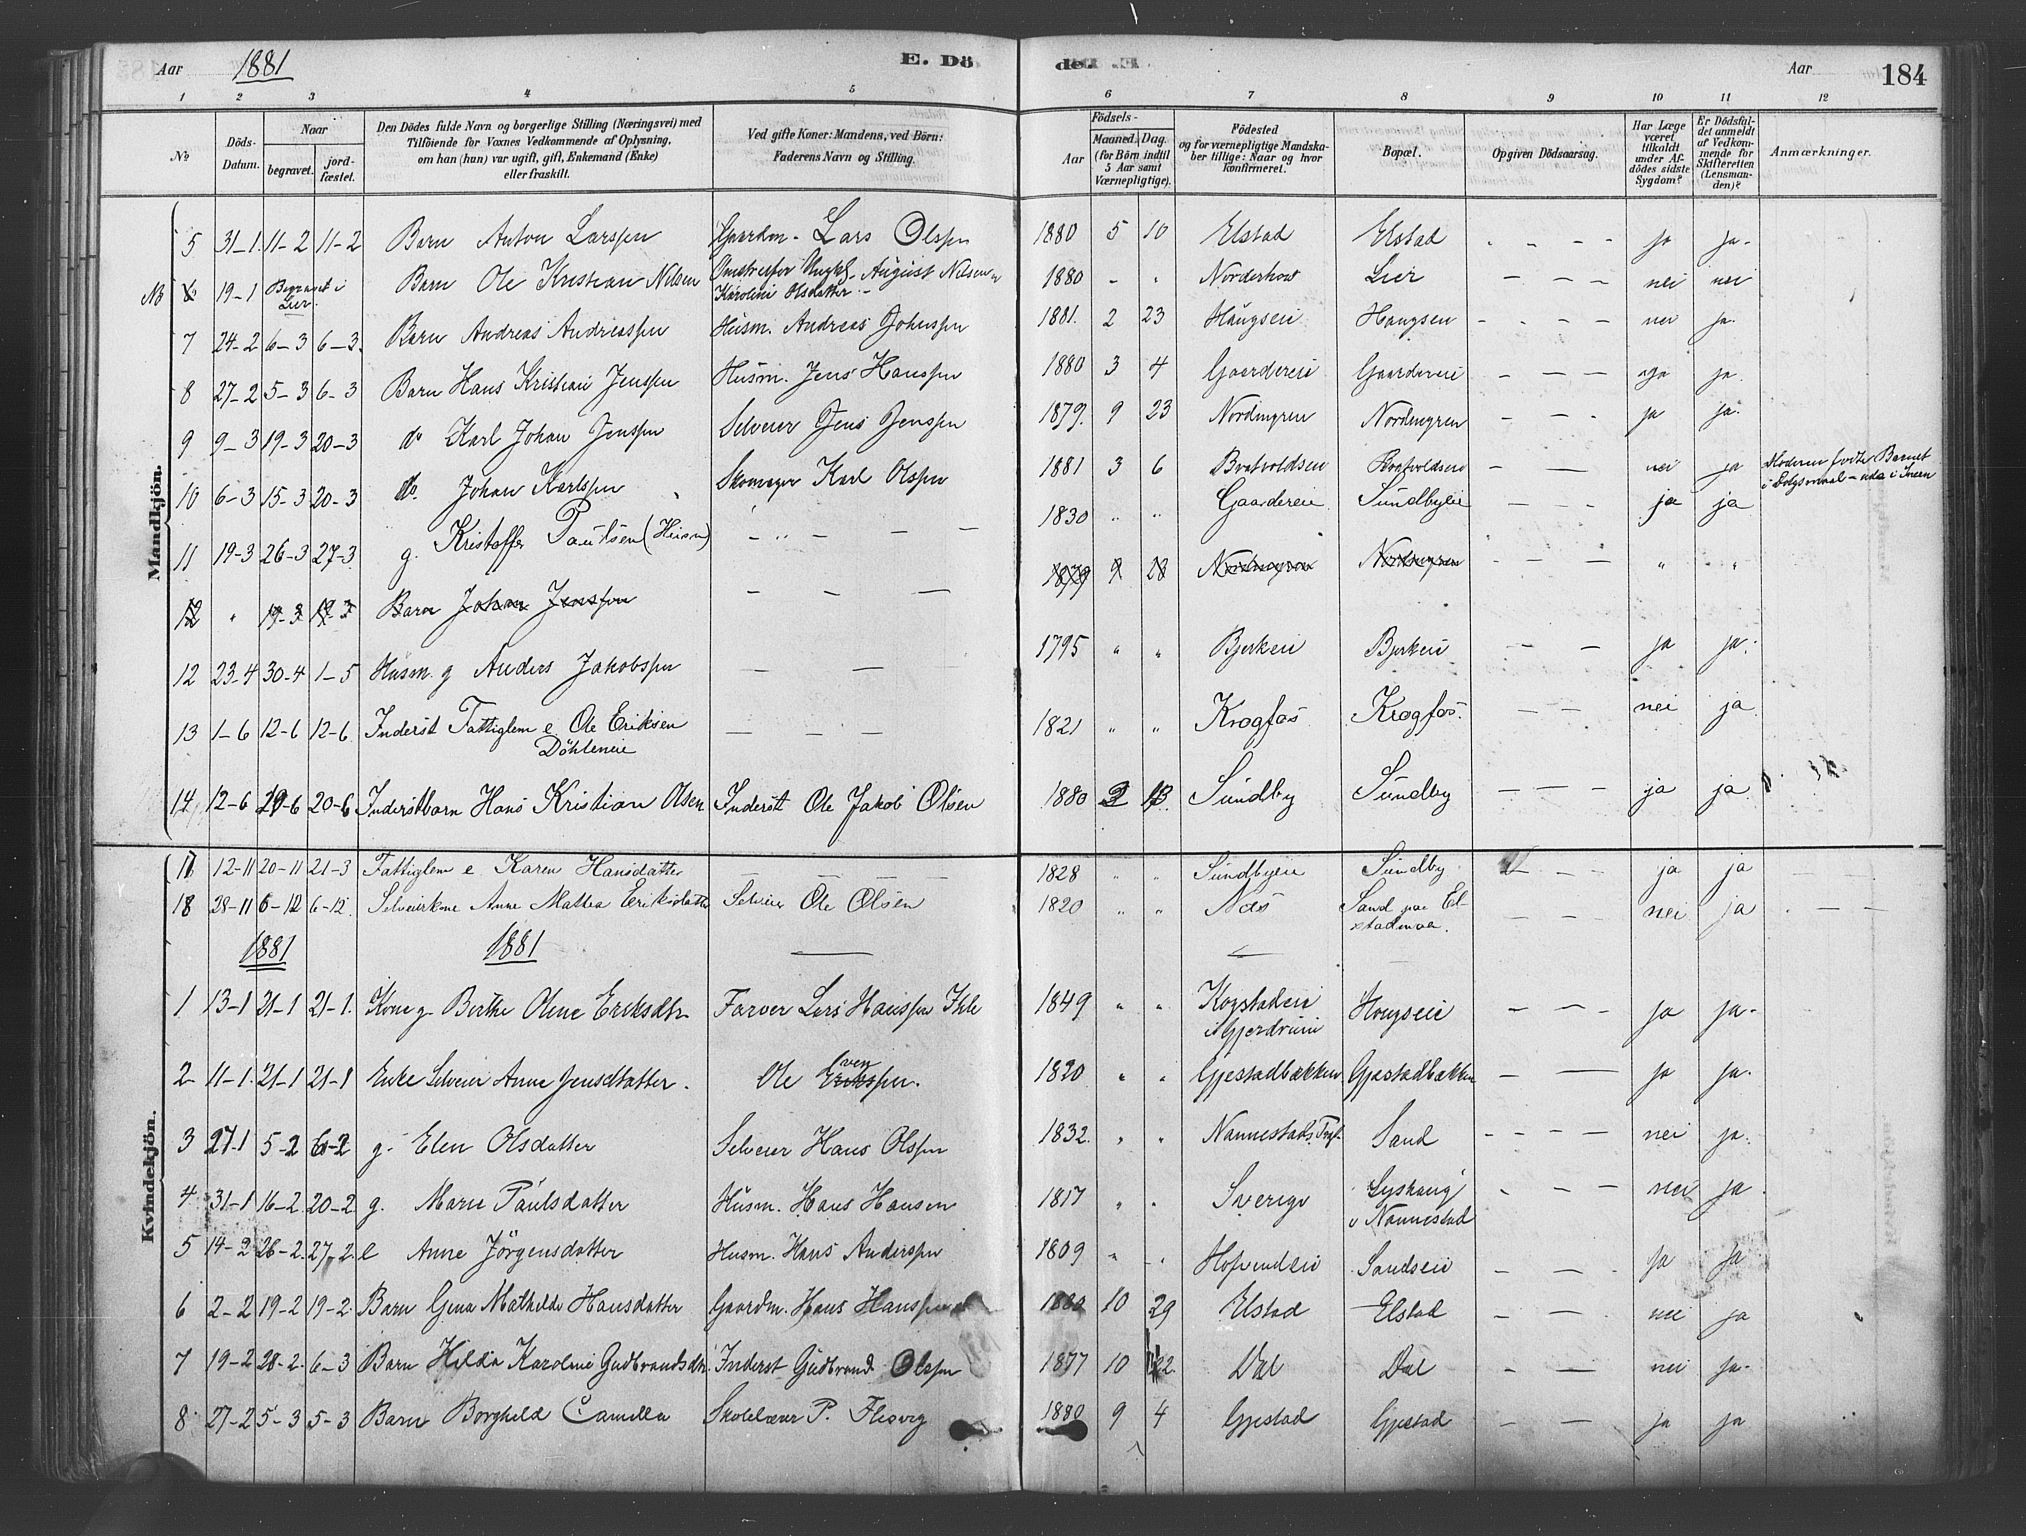 Aar 1881 E. Dö de. Aar 184
1 2 3 4 5 6 7 8 9 10 11 12
No
Döds-Datum.
Naar
begravet.
jord-fæstet.
Den Dödes fulde Navn og borgerlige Stilling (Næringsvei) med
Tilföiende for Voxnes Vedkommende af Oplysning,
om han (hun) var ugift, gift, Enkemand (Enke)
eller fraskilt.
Ved gifte Koner: Mandens, ved Börn:
Faderens Navn og Stilling.
Födsels-
Aar
Maaned. Dag.
(for Börn indtil
5 Aar samt
Værnepligtige).
Födested
og for værnepligtige Mandska-
ber tillige: Naar og hvor
konfirmeret.
Bopæl.
Opgiven Dödsaarsag.
Har Læge
været
tilkaldt
under Af-
dödes sidste
Sygdom?
Er Dödsfal-
det anmeldt
af Vedkom-
mende for
Skifteretten
(Lensman-
den)?
Anmærkninger.
Mandkjön.
5 31-1 11-2 11-2 Barn Anton Larssen Gaardm. Lars Olssen 1880 5 10 Elstad Elstad - - - - ja ja
No 6 19-1 Begravet i Lier. Barn Ole Kristian Nilsen Ungk. August Nilsen Karoline Olsdatter 1880 - " Norderhov Lier - - - nei nei
7 24-2 6-3 6-3 Barn Andreas Andreassen Husm. Andreas Johnssen 1881. 2 23 Haugseie Haugseie - - - - nei ja
8 27-2 5-3 6-3 Barn Hans Kristian Jenssen Husm. Jens Hanssen 1880 3 4 Gaardereie Gaardereie - - - ja ja
9 9-3 19-3 20-3 do Karl Johan Jenssen Selveier Jens Jenssen 1879. 9 23 Nordmyren Nordmyren - - - ja ja
10 6-3 15-3 20-3 do. Johan Karlssen Skomager Karl Olssen 1881 3 6 Bratvoldseie Bratvoldseie - - nei ja Moderen fødte Barnet
11 19-3 26-3 27-3 g. Kristoffer Paulsen (Husm) - " - - - 1830 " " Gaardereie Sundbyeie - - - ja ja
12 " 19-3 19-3 Barn Johan Jenssen - - - 1879 9 23 Nordmyren Nordmyren - - - " "
12 23-4 30-4 1-5 Husm. g Anders Jakobssen - - 1795 " " Bjerkeie Bjerkeie - - ja ja.
13 1-6 12-6 12-6 Inderst Fattiglem e Ole Eriksen Döhleneie - - - 1821 " " Krogfos Krogfos. - - nei ja
14 12-6 20-6 Inderstbarn Hans Kristian Olsen Inderst Ole Jakob Olsen 1880 Sundby Sundby - - - ja ja
Kvindekjön.
17 12-11 20-11 21-3 Fattiglem e Karen Hansdatter - - - 1828 " " Sundbyeie Sundby - - - ja ja
18 28-11 6-12 6-12. Selveierkone Anne Mathea Eriksdatter Selveier Ole Olsen 1820 " " Næs Sand paa Elstadmoe. - - - nei ja - - -
1881 1881
1 13-1 21-1 21-1. Kone g. Berthe Olene Eriksdtr. Farver Lars Hanssen Ihle 1849 " " Kogstadeie i Gjerdrum Haugseie - - - ja ja
2 11-1. 21-1 21-1 Enke Selveier Anne Jensdtatter. Ole Evenssen. 1820 " " Gjestadbækken Gjestadbækken - - ja ja.
3 27-1 5-2 6-2 g. Elen Olsdatter Selveier Hans Olssen 1832. " " Nannestads Sand - - - - nei ja.
4 31-1 16-2 20-2 g. Marie Paulsdatter Husm. Hans Hansen 1817 " " Sverige Lyshaug v Nannestad - - - nei ja
5 14-2 26-2. 27-2. e Anne Jörgensdatter Husm. Hans Anderssen 1809 " " Sandseie - - - ja ja
6 2-2 19-2 19-2. Barn Gina Mathilde Hansdatter Gaardm. Hans Hanssen 1880 10 29 Elstad Elstad - - - nei ja
7 19-2 28-2. 6-3 Barn Hilda Karoline Gudbrandsdtr. Inderst Gudbrand Olssen 1877 10 22. Dal Dal - - nei ja
8. 27-2 5-3 5-3 Barn Borghild Camilla Skolelærer P. Flesvig 1880 9 4 Gjestad Gjestad - - ja ja